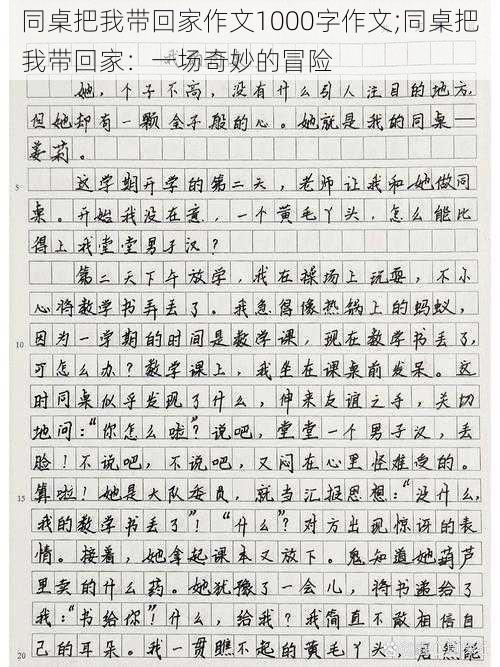 同桌把我带回家作文1000字作文;同桌把
我带回家：一场奇妙的冒险
她，个子不高，没有什么引人注目的地方，
但她却有一颗金子般的心。她就是我的同桌—
姜莉。
5
这学期开学的第二天，老师让我和她做同
桌。开始我没在意，一个黄毛丫头，怎么能比
得上我堂堂男子汉？
第二天下午放学，我在操场上玩耍，不小
心将数学书弄丢了。我急得像热锅上的蚂蚁，
10
因为一学期的时间是数学课，现在数学书丢了，
可怎么办？数学课上，我坐在课桌前发呆。这
时同桌似乎发现了什么，伸来友谊之手，关切
地问："你怎么啦？说吧，堂堂一个男子汉，丢
脸！不说吧，不说吧，又闷在心里怪难受的。
15
算啦！她是大队委员，就当汇报思想："没什么，
我的数学书丢了"！"什么"？对方出现惊讶的表
情。接着，她拿起课本又放下。鬼知道她葫芦
里卖的什么药。她犹豫了一会儿，将书递给了
我："书给你"！什么，给我？我简直不敢相信自
20
己的耳朵。我一贯瞧不起的黄毛丫头，竟然能